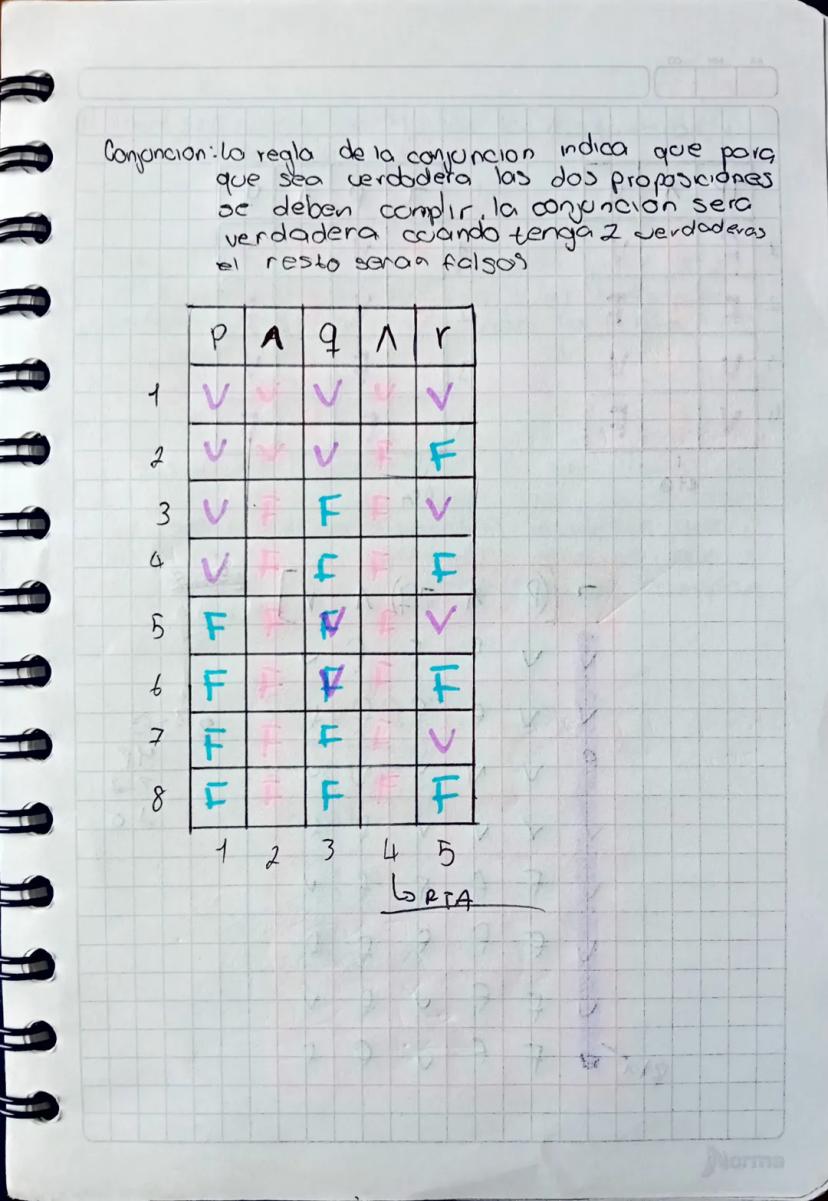 Conjuncion: La regla de la conjuncion indica que para
que sea verdadera las dos proposiciones
se deben cumplir, la conjunción sera
verdadera cuando tenga 2 verdaderas
el resto seran falsos
p ∧ q ∧ r
1 V V V V V
2 V V V F F
3 V F F F V
4 V F F F F
5 F F V F V
6 F F V F F
7 F F F F V
8 F F F F F
1 2 3 4 5
↳ RTA
Norma